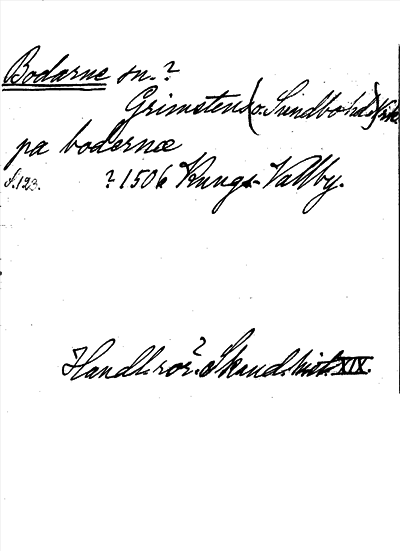 Bodarne sn.?
Grimstens (o. Sundbo hd.)
pa bodernæ
s. 123. ? 1506 Kungs-Vallby.
Handl. rör? Skand. hist. XIX.